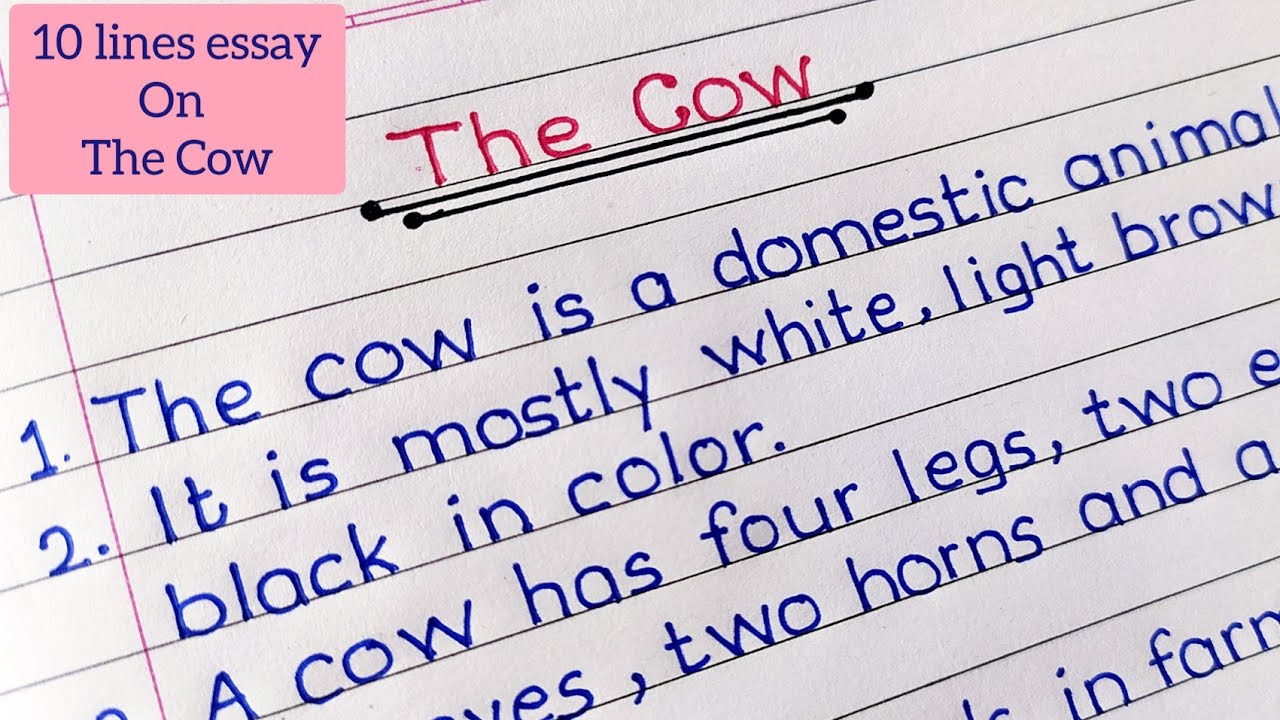 10 lines essay
On
The Cow
The Cow
1. The cow is a domestic animal
2. It is mostly white, light brow
black in color.
A cow has four legs, two e
yes, two horns and a
in farm